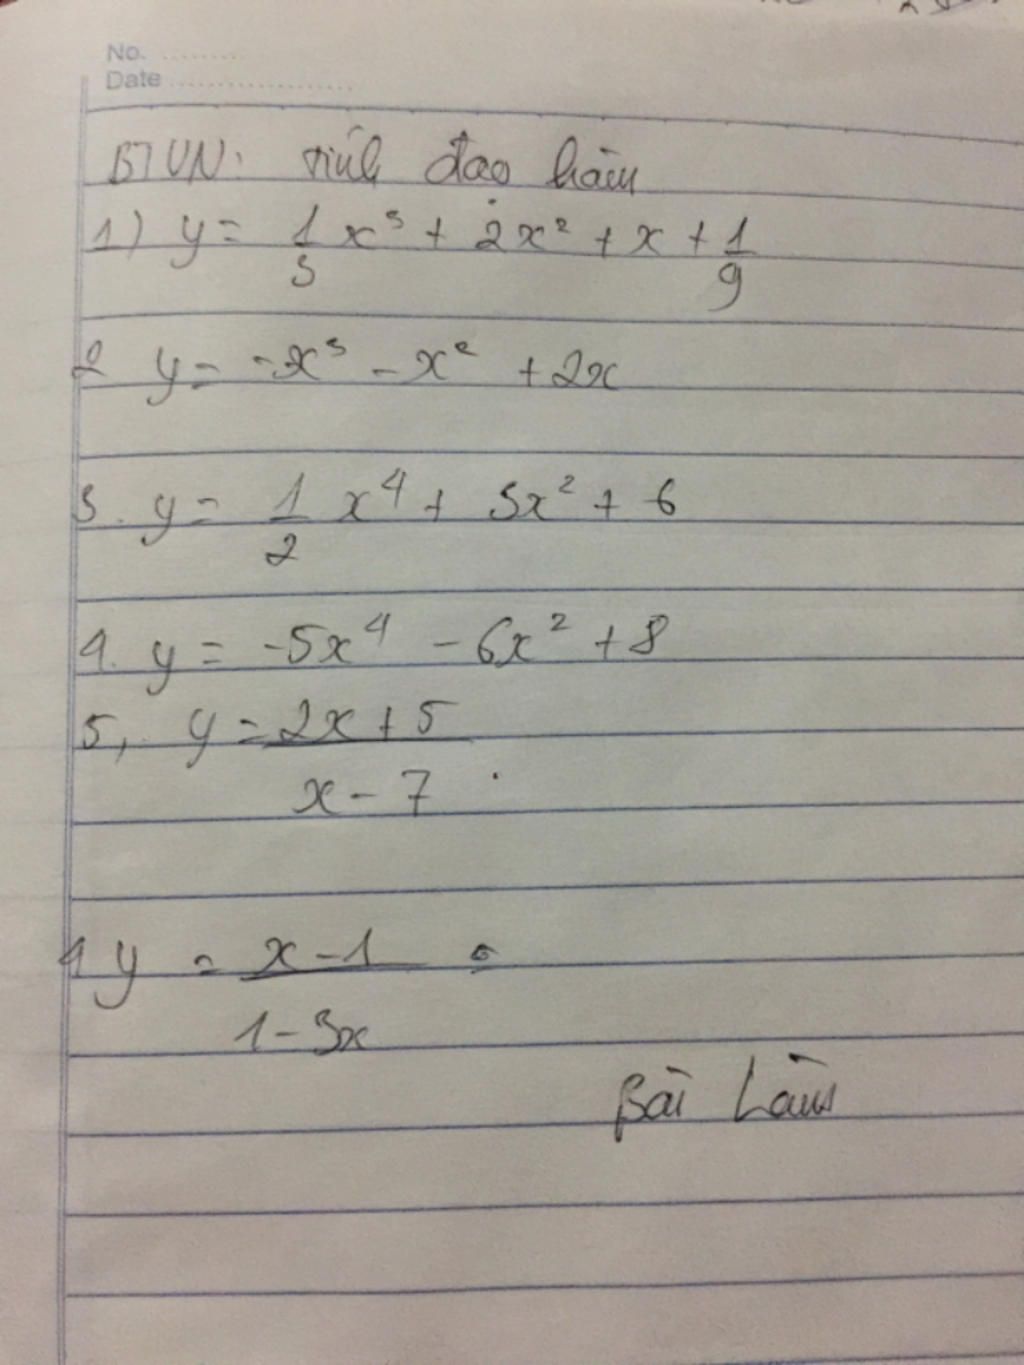 No.
Date
BTVN: Tính đạo hàm
1) y = 1/3 x³ + 2x² + x + 1/9
2 y = -x³ - x² + 2x
3. y = 1/2 x⁴ + 3x² + 6
4. y = -5x⁴ - 6x² + 8
5, y = 2x + 5 / x - 7
y = x - 1 / 1 - 3x =
Bài Làm